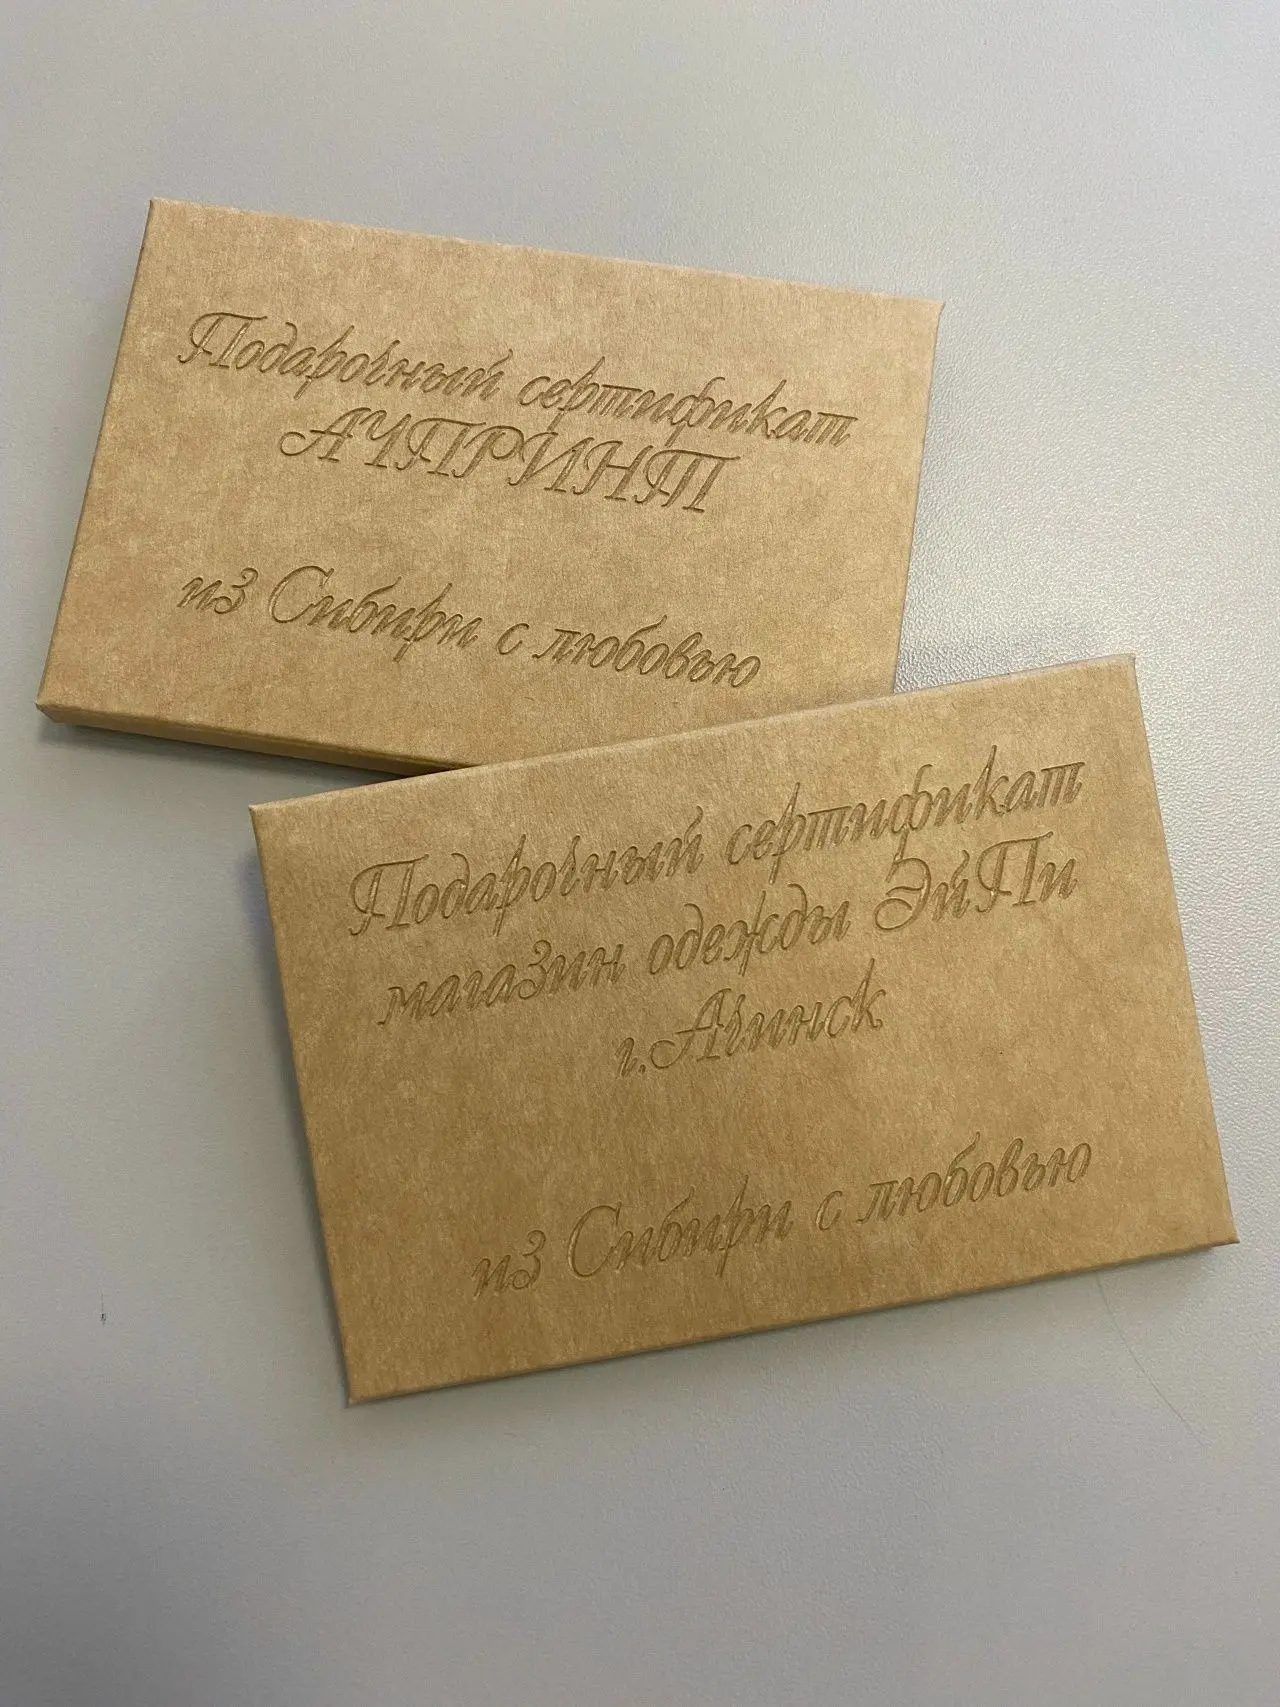 Подарочный сертификат
АЧПРИНТ
из Сибири с любовью
Подарочный сертификат
магазин одежды ЭйПи
г.Ачинск
из Сибири с любовью